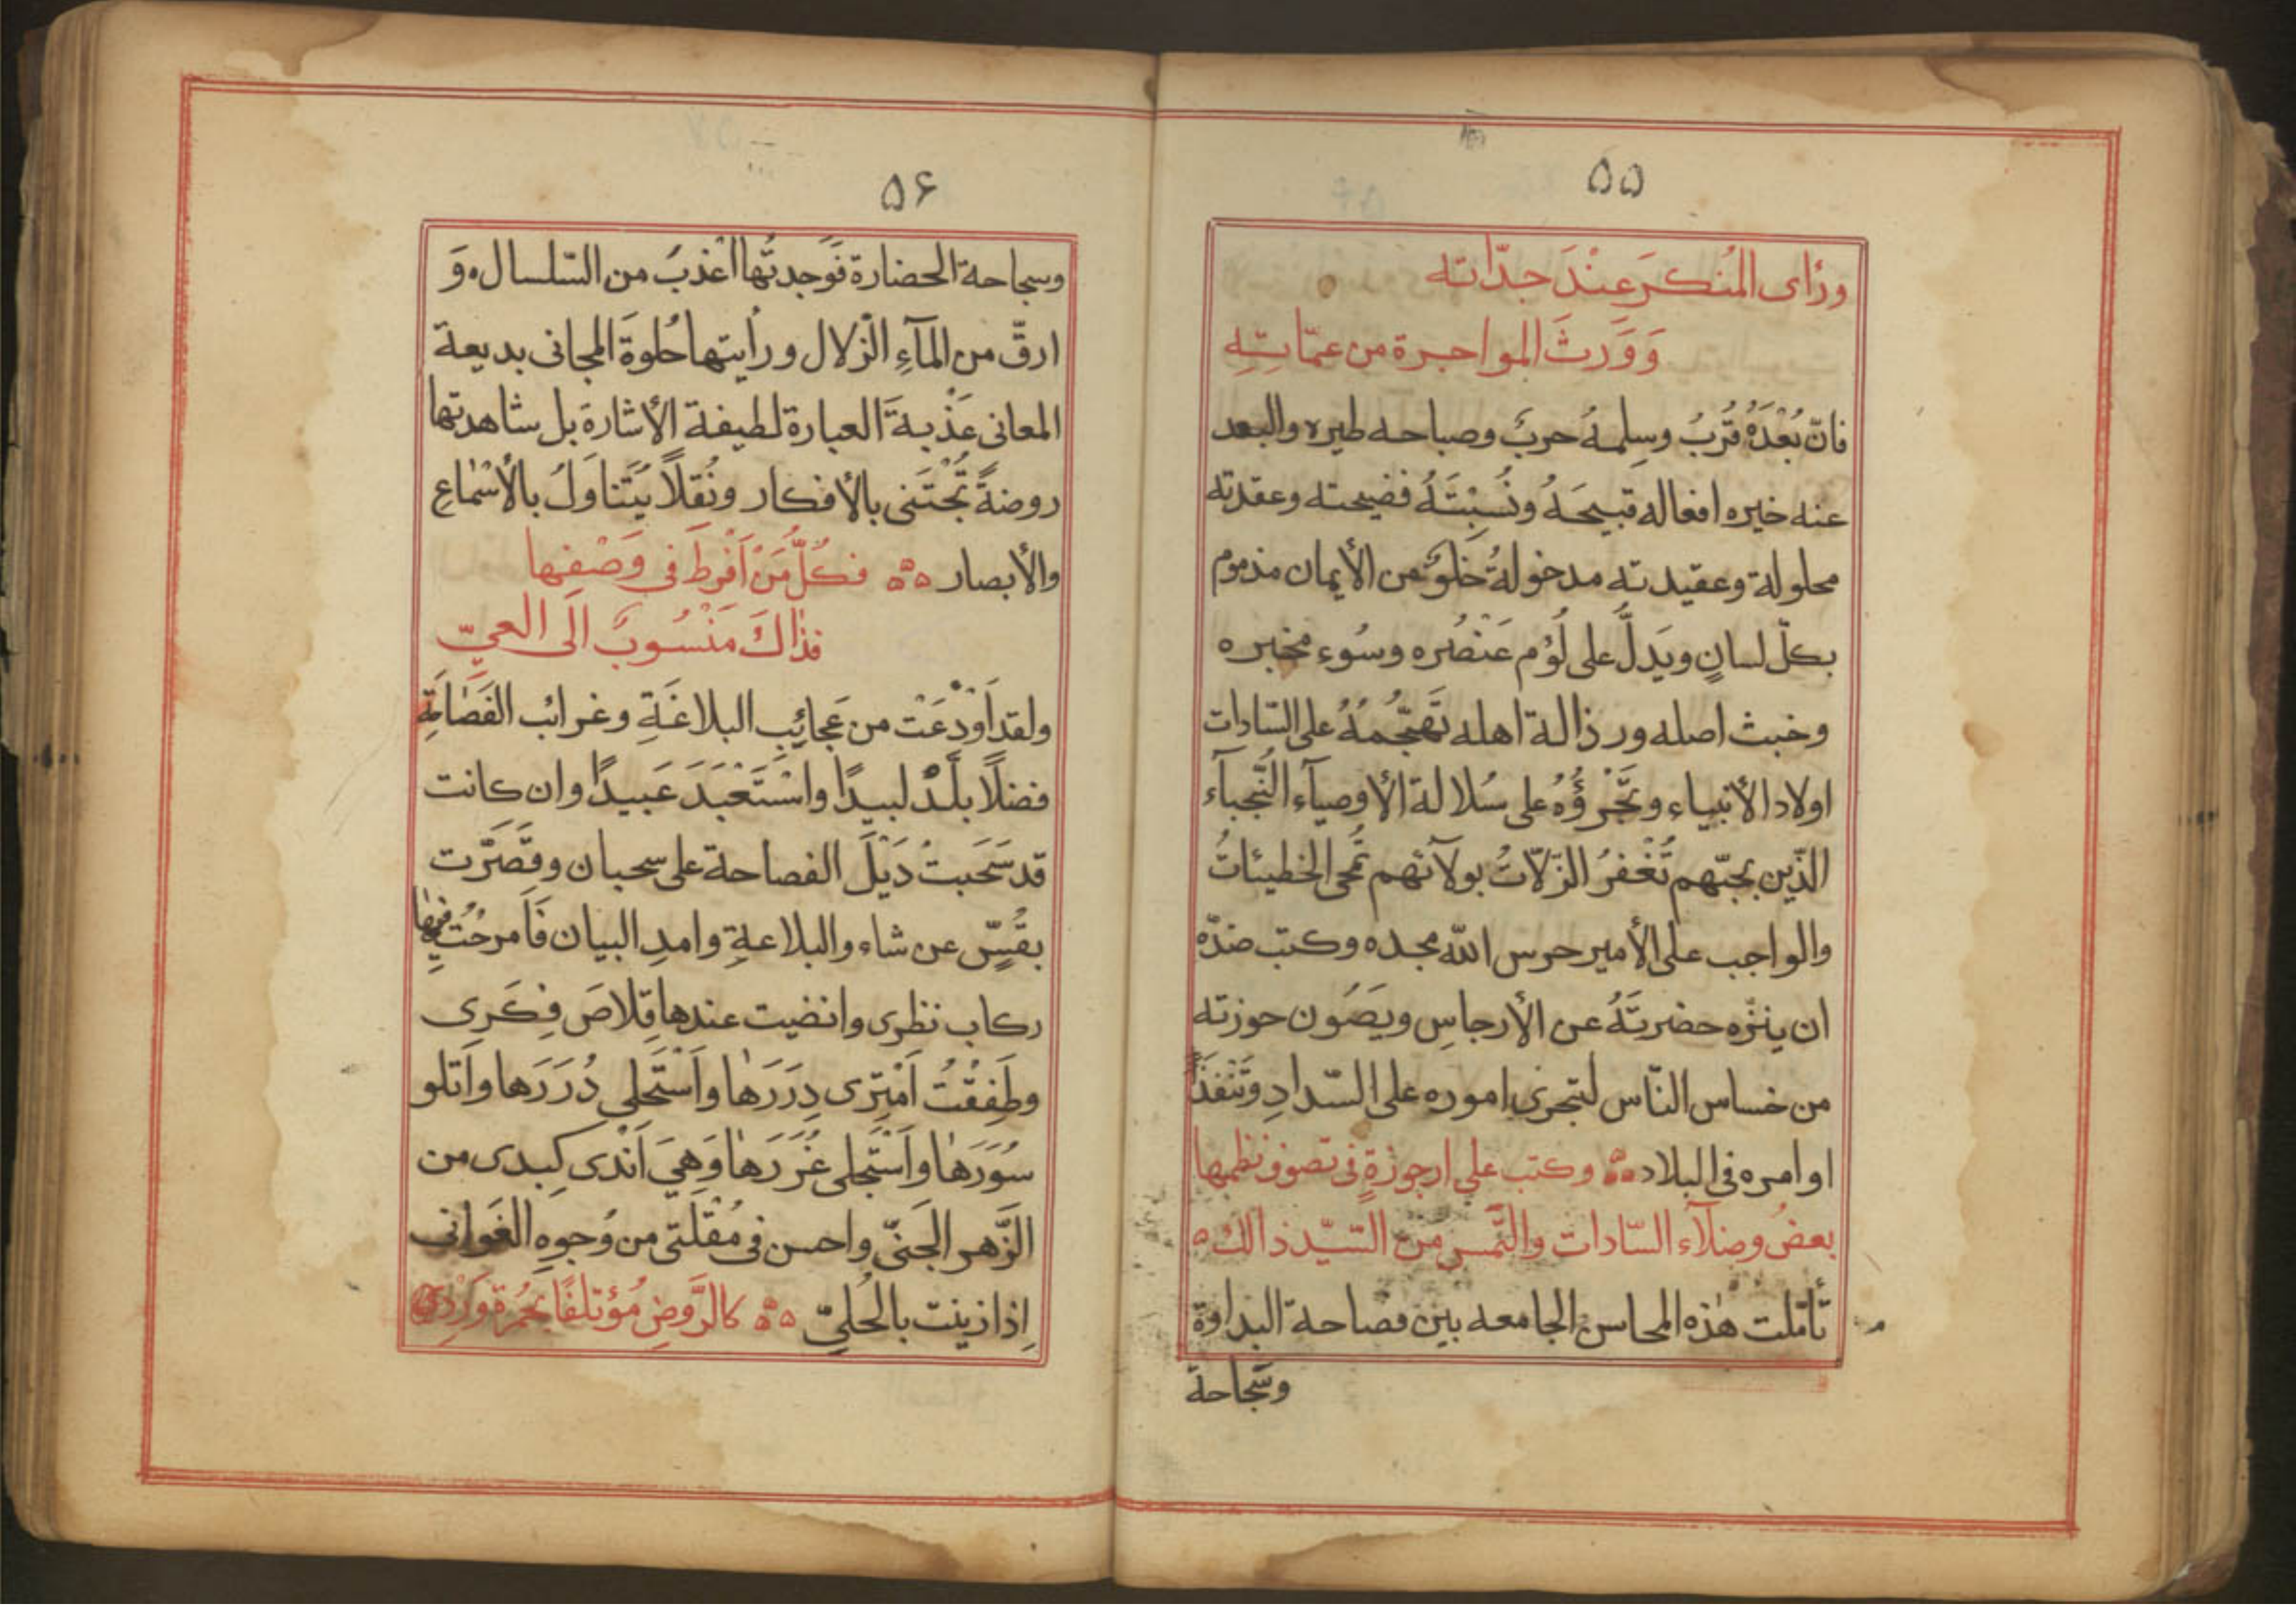 ۵۵
ورَاى المُنكرَ عِنْدَ جدّاته
وَوَرِثَ المواجرة من عمّاتِهِ
فانّ بُعْدَهُ قُرْبُ وسِلمهُ حربٌ وصباحه طيره والبعد
عنه خيره افعاله قبيحَهُ ونُسِبْتَهُ فضيحته وعقدته
محلولة وعقيدته مدخولةُ خلوٌ من الأيمان مذموم
بكلّ لسانٍ ويَدلُّ على لُؤم عَنْصُره وسُوء مخبره
وخبث اصله ورذالة اهله تَهَجُّمُهُ على السّادات
اولاد الأنبياء وتَجَرْؤُهُ على سُلالة الأوصيآء النُّجبآء
الذّين بحبّهم تُغْفرُ الزّلاّتُ بولآئهم تُمحى الخطيئاتُ
والواجب على الأمير حرس اللّه مجده وكبت ضدّه
ان ينزّه حضرتَهُ عن الأرجاسِ ويَصُون حوزته
من خساس النّاس لتجرى اموره على السّدادِ وتَنْفُذَ
اوامره فى البلاد وكتب على ارجوزةٍ فى تصوف نظمها
بعضُ وضلآء السّادات والتمس من السّيّد ذالك
تأمّلت هٰذه المحاسن الجامعه بين فصاحة البداوة
وسَجاحة
۵۶
وسجاحة الحضارة فَوَجدتُها اعْذبَ من السّلسال. وَ
ارقّ من المآءِ الزّلال ورأيتها حُلوةَ المجانى بديعة
المعانى عَذْبةَ العبارة لطيفة الأشارة بل شاهدتها
روضةً تُجْتَنى بالأفكار ونُقلاً يُتَناوَلُ بالأسْماعِ
والأبصار فكلُّ مَنْ اَفْرطَ فى وَصْفِها
فذاكَ مَنْسُوبٌ الَى العىّ
ولقد اَوْدَعَتْ من عَجائِبِ البلاغَةِ وغرائب الفَصاحَةِ
فضلاً بلّدْ لبيدًا واسْتَعْبَدَ عَبيدًا وان كانت
قد سَحَبتُ ذَيْلَ الفصاحة على سحبان وقَصَّرَت
بقُسٍّ عن شاء والبلاعةِ وامدِ البيان فَاَمرحْتُ فيها
ركاب نظرى وانضيت عندها قِلاصَ فِكَرِى
وطَفِقْتُ اَمْتِرى دِرَرَهٰا واَسْتَحلِى دُرَرَها واَتلو
سُوَرَهٰا واَسْتَجلى غُرَرَهٰا وَهِىَ اَنْدى كِبدى من
الزَّهر الجَنىّ واحسن فى مُقْلَتى من وُجوهِ الغَوانى
اِذا زينت بالحُلىِّ كالرَّوضِ مُؤتلفًا بحُمرة وَرْدِهِ